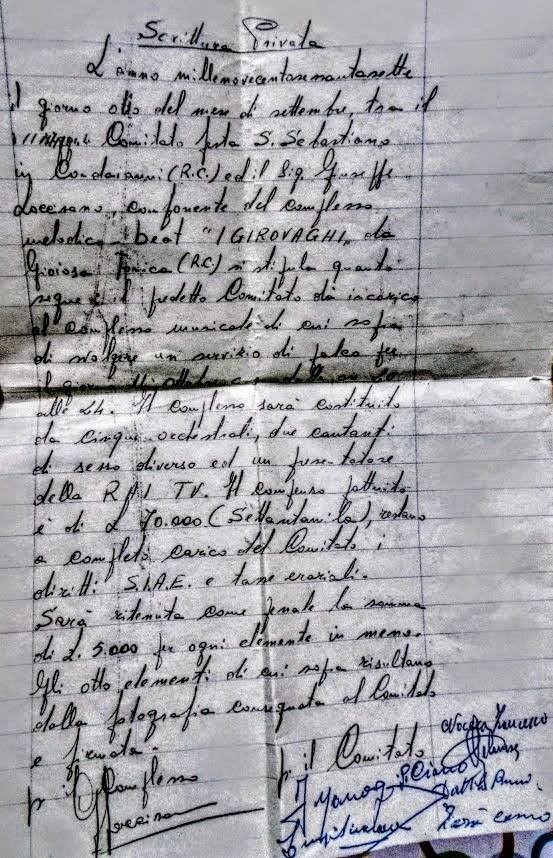 Scrittura Privata
L'anno millenovecentosessantasette
il giorno otto del mese di settembre, tra il
Comitato festa S. Sebastiano
in Condojanni (R.C.) ed il Sig. Giuseppe
Loccisano, componente del complesso
melodico - beat "I GIROVAGHI" da
Gioiosa Jonica (RC) si stipula quanto
segue: il predetto Comitato dà incarico
al complesso musicale di cui sopra
di svolgere un servizio di palco per
il giorno
alle 24. Il complesso sarà costituito
da cinque orchestrali, due cantanti
di sesso diverso ed un presentatore
della RAI TV. Il compenso pattuito
è di £ 70.000 (Settantamila), restano
a completo carico del Comitato i
diritti S.I.A.E. e tasse erariali.
Sarà ritenuta come penale la somma
di £. 5.000 per ogni elemento in meno.
Gli otto elementi di cui sopra risultano
dalla fotografia consegnata al Comitato
e firmata.
p. il Complesso
p. il Comitato